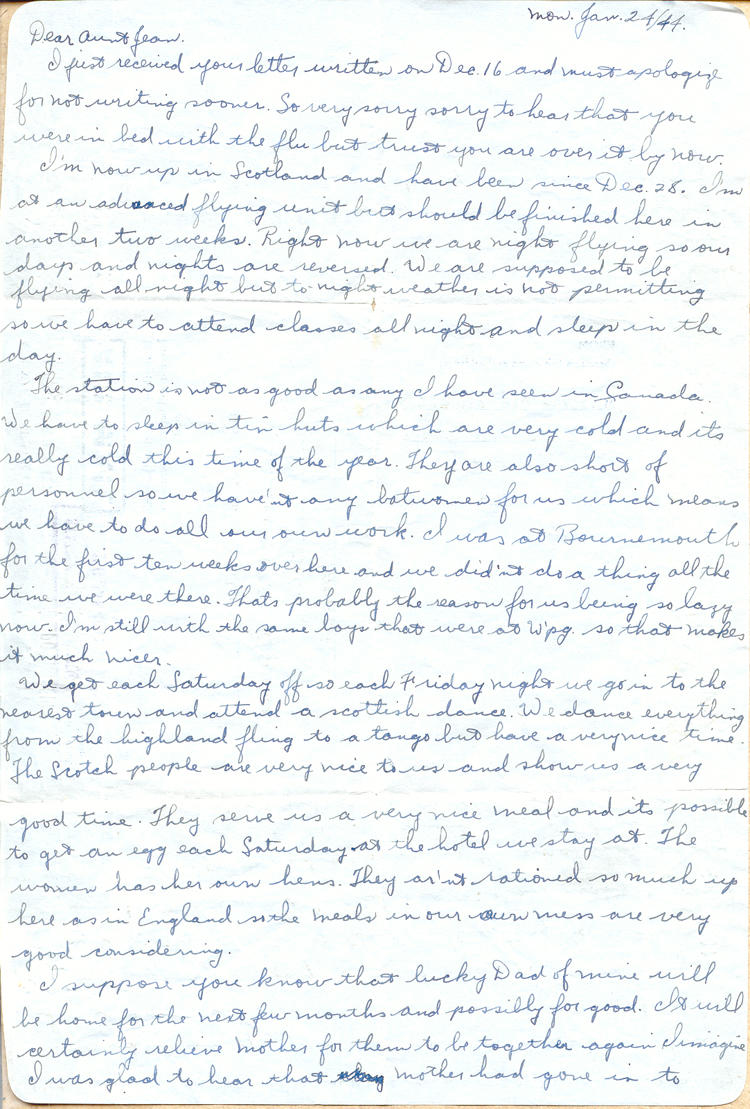 Mon. Jan. 24/44.
Dear Aunt Jean.
I just received your letter written on Dec. 16 and must apologize
for not writing sooner. So very sorry sorry to hear that you
were in bed with the flu but trust you are over it by now.
I'm now up in Scotland and have been since Dec. 28. I'm
at an advanced flying unit but should be finished here in
another two weeks. Right now we are night flying so our
days and nights are reversed. We are supposed to be
flying all night but to-night weather is not permitting
so we have to attend classes all night and sleep in the
day.
The station is not as good as any I have seen in Canada.
We have to sleep in tin huts which are very cold and its
really cold this time of the year. They are also short of
personnel so we have'nt any batwomen for us which means
we have to do all our own work. I was at Bournemouth
for the first ten weeks over here and we did'nt do a thing all the
time we were there. Thats probably the reason for us being so lazy
now. I'm still with the same boys that were at W'pg. so that makes
it much nicer.
We get each Saturday off so each Friday night we go in to the
nearest town and attend a scottish dance. We dance everything
from the highland fling to a tango but have a very nice time.
The Scotch people are very nice to us and show us a very
good time. They serve us a very nice meal and its possible
to get an egg each Saturday at the hotel we stay at. The
women has her own hens. They ar'nt rationed so much up
here as in England so the meals in our own mess are very
good considering.
I suppose you know that lucky Dad of mine will
be home for the next few months and possibly for good. It will
certainly relieve Mother for them to be together again I imagine
I was glad to hear that mother had gone in to